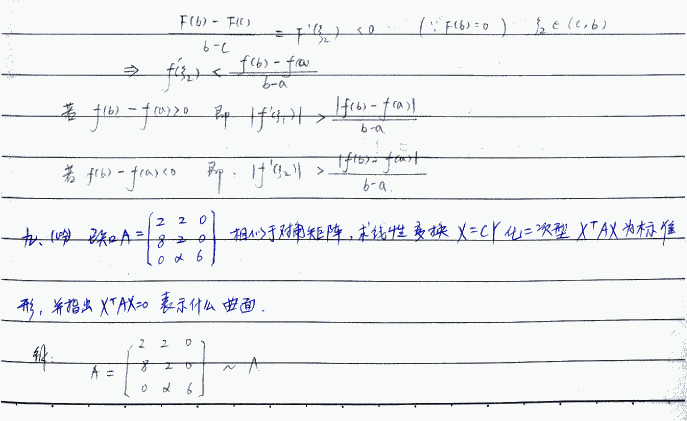 F(b) - F(c) / b-c = F'(ξ₂) < 0 (∵ F(b)=0) ξ₂ ∈ (c, b)
⇒ f'(ξ₂) < f(b) - f(a) / b-a
若 f(b) - f(a)>0 即 |f'(ξ₁)| > |f(b) - f(a)| / b-a
若 f(b) - f(a)<0 即. |f'(ξ₂)| > |f(b) - f(a)| / b-a.
九、(10分) 已知 A = [2 2 0; 8 2 0; 0 α 6] 相似于对角矩阵, 求线性变换 X=CY 化二次型 XᵀAX 为标准
形, 并指出 XᵀAX=0 表示什么曲面.
解: A = [2 2 0; 8 2 0; 0 α 6] ~ Λ